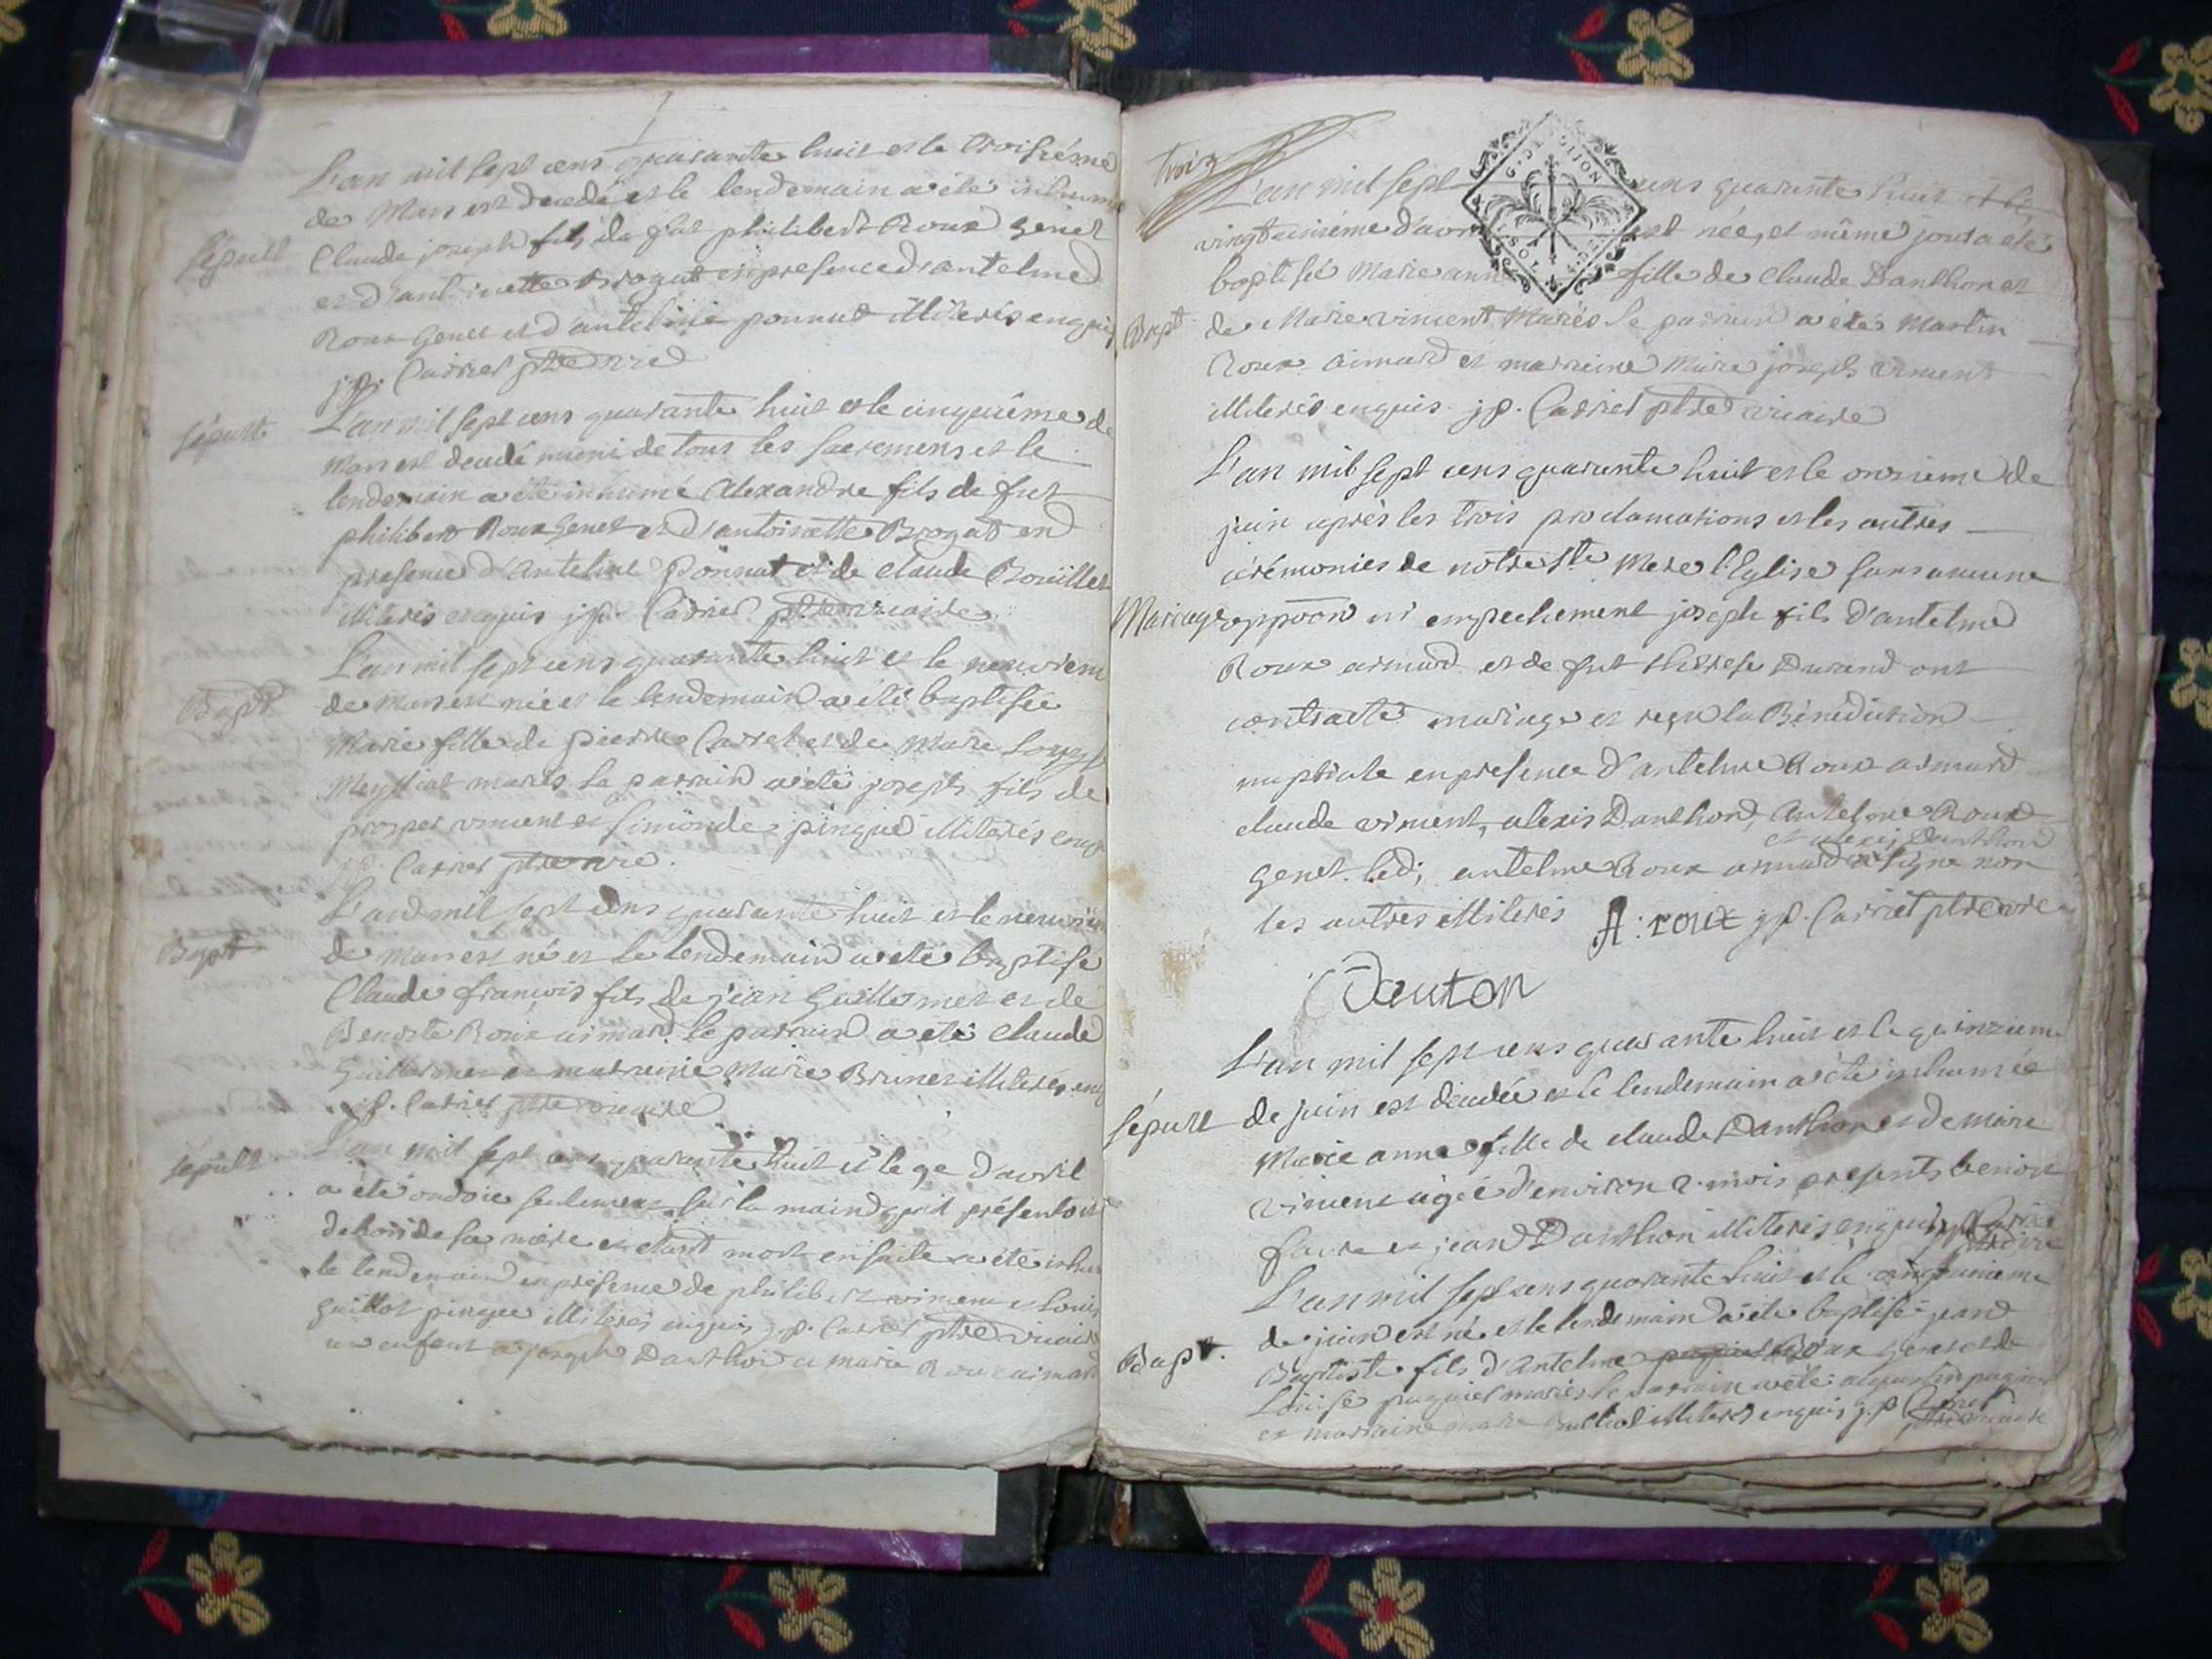 L'an mil sept cens quarante huit et le troisiéme
de Mars est decedé et le lendemain a été inhumé
Sépult Claude joseph fils de fut philibert Roux genet
et d'antoinette Brogat en presence d'antelme
Roux Genet et d'antelme ponnat illiterés enquis
jp. Carrier ptre vic
Sépult L'an mil sept cens quarante huit et le cinquiéme de
Mars est decedé muni de tous les sacremens et le
lendemain a été inhumé Alexandre fils de fut
philibert Roux Genet et d'antoinette Brogat en
presence d'Antelme Ponnat et de claude Rouillet
illiterés enquis jp. Carrier ptre vicaire
L'an mil sept cens quarante huit et le neuviem
Bapt de Mars est née et le lendemain a été baptisée
Marie fille de pierre Carrel et de Marie
mariés le parrain a été joseph fils de
prosper vincent et simonde pingue illiterés enqu
jp. Carrier ptre vic.
L'an mil sept cens quarante huit et le neuviem
Bapt de Mars est né et le lendemain a été baptisé
Claude françois fils de jean Guillermet et de
Benoite Roux aimard le parrain a été claude
Guillermet et marraine Marie Brunet illiterés enq
jp. Carrier ptre vicaire
sepult L'an mil sept cens quarante huit et le 9e d'avril
a été ondoié seulement sur la main qu'il présentoit
dehors de sa mere et etant mort ensuite a été inhu
le lendemain en présence de philibert vincent et Louis
Guillot pingue illiterés enquis jp. Carrier ptre vicaire
un enfant a joseph Danthon et marie Roux aimard
trois
L'an mil sept cens quarante huit et le
G. DE DIJON
vingt uniéme d'avril est née, et même jour a été
baptisé Marie anne fille de claude Danthon et
Bapt de Marie vincent Mariés le parrain a été Martin
Roux aimard et marraine Marie joseph vincent
illiterés enquis. jp. Carrier ptre vicaire
L'an mil sept cens quarante huit et le onzieme de
juin après les trois proclamations et les autres
cérémonies de notre Ste Mere l'Eglise sans aucune
Mariage oppoon ni empechement joseph fils d'antelme
Roux aimard et de fut therese Durand ont
contracté mariage et reçu la Bénédiction
nuptiale en presence d'antelme Roux aimard
claude vincent, alexis Danthon, Antelme Roux
et alexis Danthon
Genet. led; antelme Roux aimard a signé non
les autres illiterés A: roux jp. Carrier ptre vic
Danton
L'an mil sept cens quarante huit et le quinzieme
Sépult de juin est decedée et le lendemain a été inhumée
Marie anne fille de claude Danthon et de marie
vincent agée d'environ 2 mois presents benoit
favre et jean Danthon illiterés enquis jp Carrier
ptre vic
L'an mil sept cens quarante huit et le vingtunieme
de juin est né et le lendemain a été baptisé jean
Bapt. Baptiste fils d'Antelme Roux genet et de
Louise puguiet mariés le parrain a été
et marraine marie illiterés enquis j.p Carrier
ptre vicaire